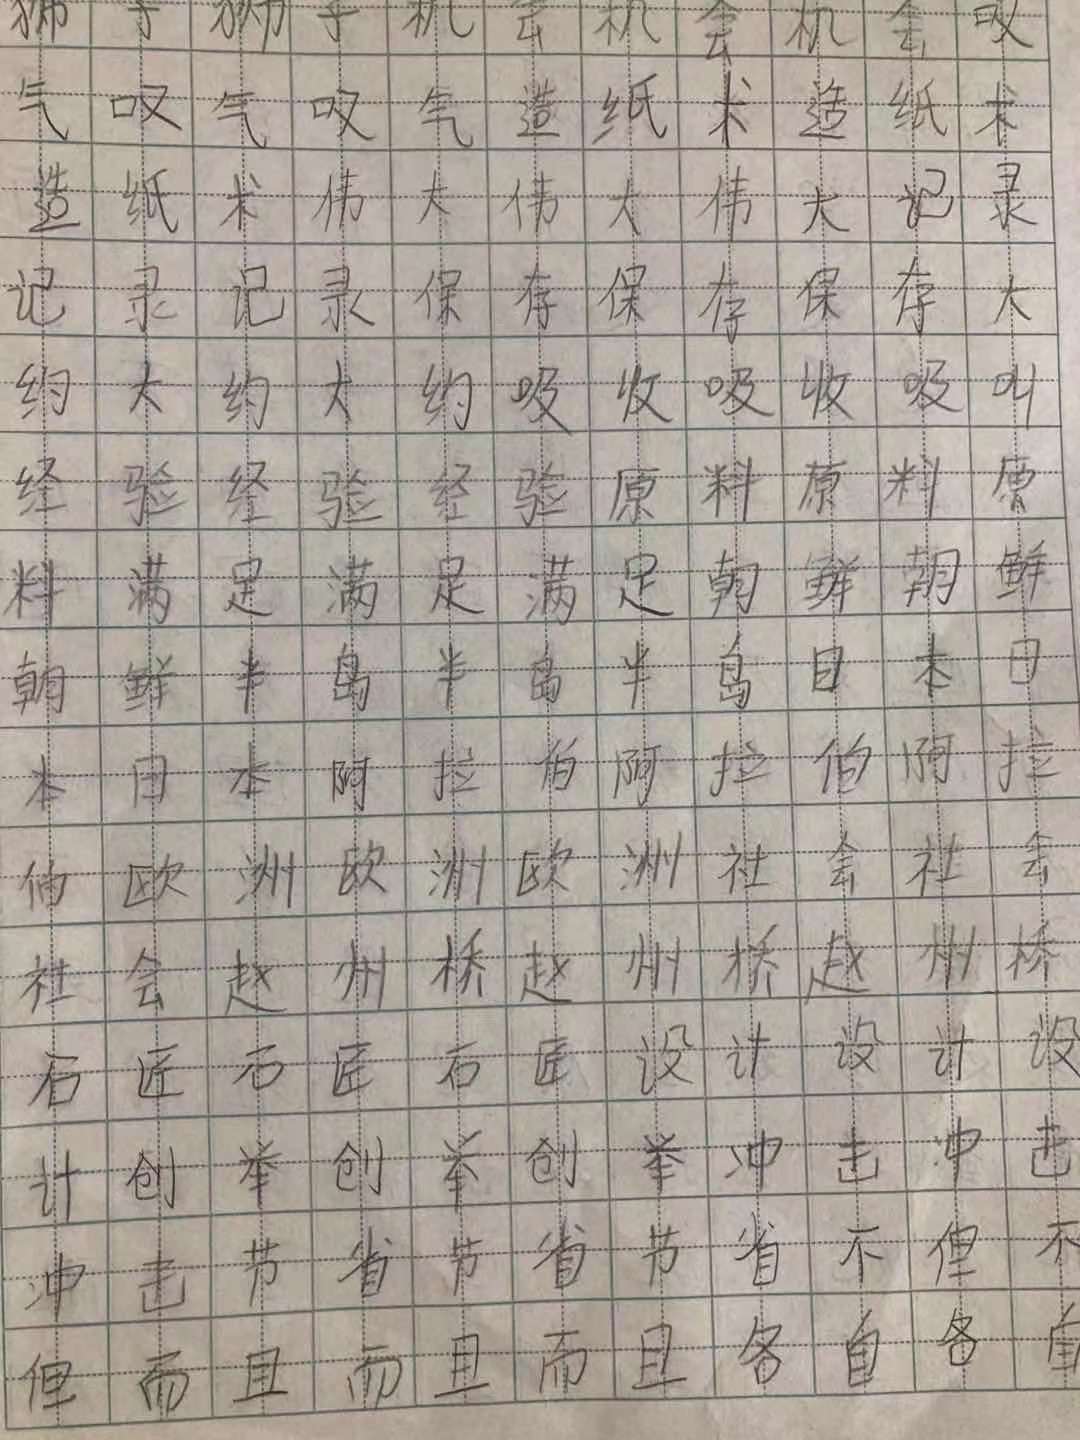 狮子狮子机会机会机会叹
气叹气叹气造纸术造纸术
造纸术伟大伟大伟大记录
记录记录保存保存保存大
约大约大约吸收吸收吸叫
经验经验经验原料原料原
料满足满足满足朝鲜朝鲜
朝鲜半岛半岛半岛日本日
本日本阿拉伯阿拉伯阿拉
伯欧洲欧洲欧洲社会社会
社会赵州桥赵州桥赵州桥
石匠石匠石匠设计设计设
计创举创举创举冲击冲击
冲击节省节省节省不但不
但而且而且而且各自各自